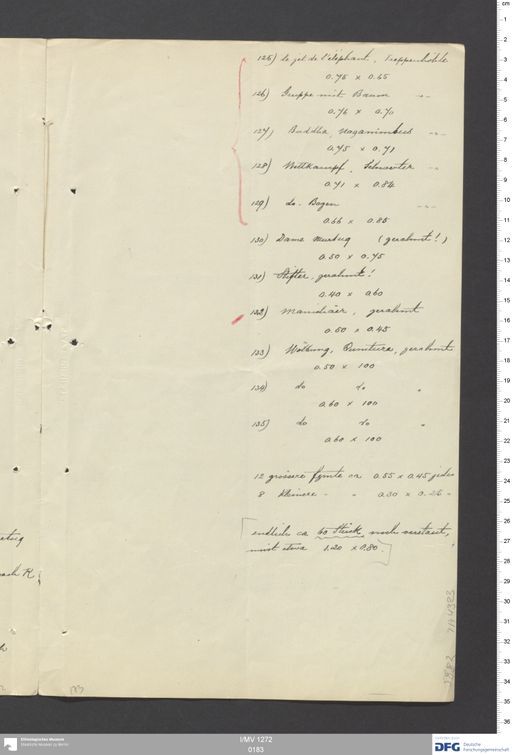 125) le jet de l'éléphant, Treppenhöhle
0.75 x 0.65
126) Gruppe mit Baum -"-
0.76 x 0.70
127) Buddha, Naganimbus -"-
0.75 x 0.71
128) Wettkampf, Schwerter -"-
0.71 x 0.84
129) do. Bogen -"-
0.66 x 0.85
130) Dame Murtuq (gerahmt!)
0.50 x 0.75
131) Stifter, gerahmt!
0.40 x 0.60
132) Manichäer, gerahmt
0.60 x 0.45
133) Wölbung, Qumtura, gerahmt
0.50 x 100
134) do do "
0.60 x 100
135) do do "
0.60 x 100
12 grössere ca 0.55 x 0.45 jedes
8 kleinere - " 0.30 x 0.26 "
endlich ca 60 Stück noch
meist etwa 1.20 x 0.80.
Ethnologisches Museum
Staatliche Museen zu Berlin
I/MV 1272
0183
DFG Deutsche
Forschungsgemeinschaft